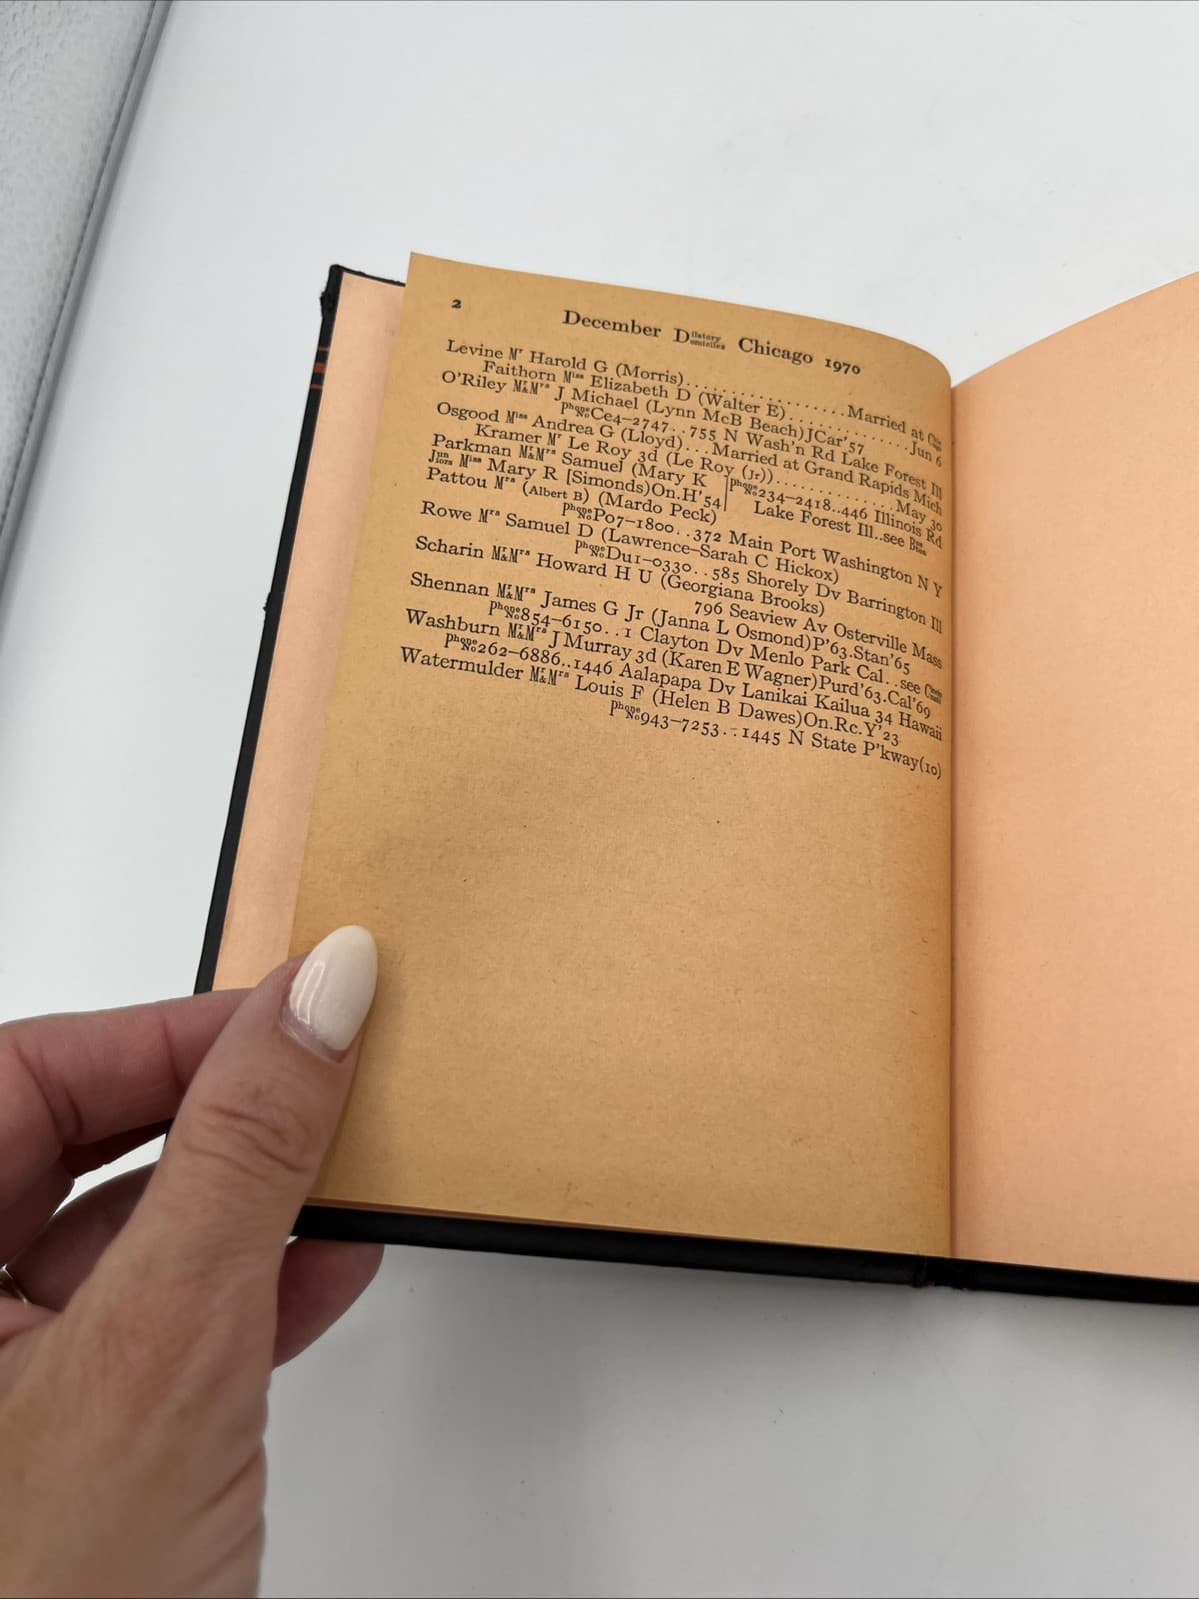 2
December Dilatory Domiciles Chicago 1970
Levine Mr Harold G (Morris)..................Married at Chicago
Faithorn Miss Elizabeth D (Walter E)..............Jun 6
O'Riley Mr&Mrs J Michael (Lynn McB Beach)JCar'57
Phone No Ce4–2747..755 N Wash'n Rd Lake Forest Ill
Osgood Miss Andrea G (Lloyd)...Married at Grand Rapids Mich
Kramer Mr Le Roy 3d (Le Roy (Jr))..............May 30
Parkman Mr&Mrs Samuel (Mary K Phone No 234–2418..446 Illinois Rd
Juniors Miss Mary R [Simonds)On.H'54 Lake Forest Ill..see
Pattou Mrs (Albert B) (Mardo Peck)
Phone No PO7–1800..372 Main Port Washington N Y
Rowe Mrs Samuel D (Lawrence–Sarah C Hickox)
Phone No Du1–0330..585 Shorely Dv Barrington Ill
Scharin Mr&Mrs Howard H U (Georgiana Brooks)
796 Seaview Av Osterville Mass
Shennan Mr&Mrs James G Jr (Janna L Osmond)P'63.Stan'65
Phone No 854–6150..1 Clayton Dv Menlo Park Cal..see
Washburn Mr&Mrs J Murray 3d (Karen E Wagner)Purd'63.Cal'69
Phone No 262–6886..1446 Aalapapa Dv Lanikai Kailua 34 Hawaii
Watermulder Mr&Mrs Louis F (Helen B Dawes)On.Rc.Y'23
Phone No 943–7253..1445 N State P'kway(10)